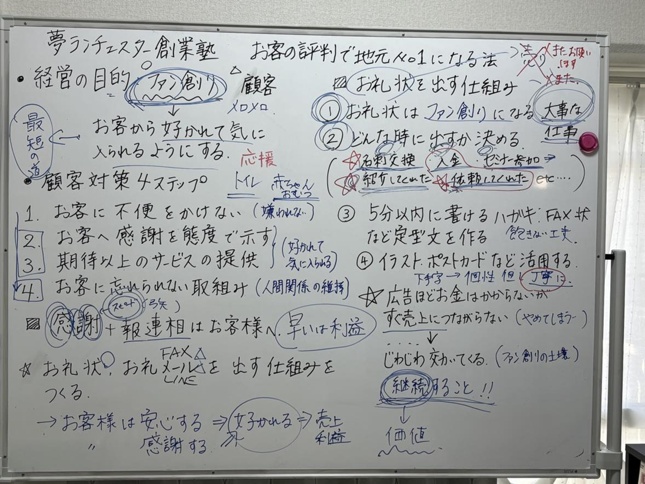 夢ランチェスター創業塾
お客の評判で地元No1になる法
→売り
またお願いします
また
・経営の目的
ファン創り
顧客
メロメロ
最短の道
お客から好かれて気に
入られるようにする.
応援
・顧客対策4ステップ
トイレ 赤ちゃん
おむつ
1. お客に不便をかけない(嫌われない)
2. お客へ感謝を態度で示す
3. 期待以上のサービスの提供
(好かれて
気に入られる)
4. お客に忘れられない取組み(人間関係の維持)
感謝+報連相はお客様へ
スピード
早いは利益
☆お礼状、お礼メールを出す仕組みを
FAX
LINE
つくる.
→お客様は安心する⇒好かれる⇒売上
〃 感謝する 利益
お礼状を出す仕組み
① お礼状はファン創りになる大事な
仕事
② どんな時に出すか決める.
☆名刺交換 入金 セミナー参加
☆紹介してくれた ☆依頼してくれた etc‥‥
③ 5分以内に書けるハガキ:FAX状
など定型文を作る 飽きない工夫
④ イラスト、ポストカードなど活用する.
下手字→個性 但 丁寧に
☆広告ほどお金はかからないが
すぐ売上につながらない(やめてしまう…)
‥‥
じわじわ効いてくる.(ファン創りの土壌)
継続すること!!
↓
価値